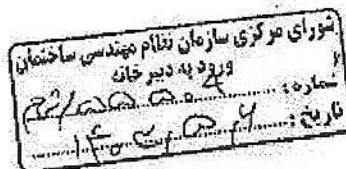 شورای مرکزی سازمان نظام مهندسی ساختمان
ورود به دبیر خانه
شماره:
تاریخ: ۱۴۰۲,۵,۲